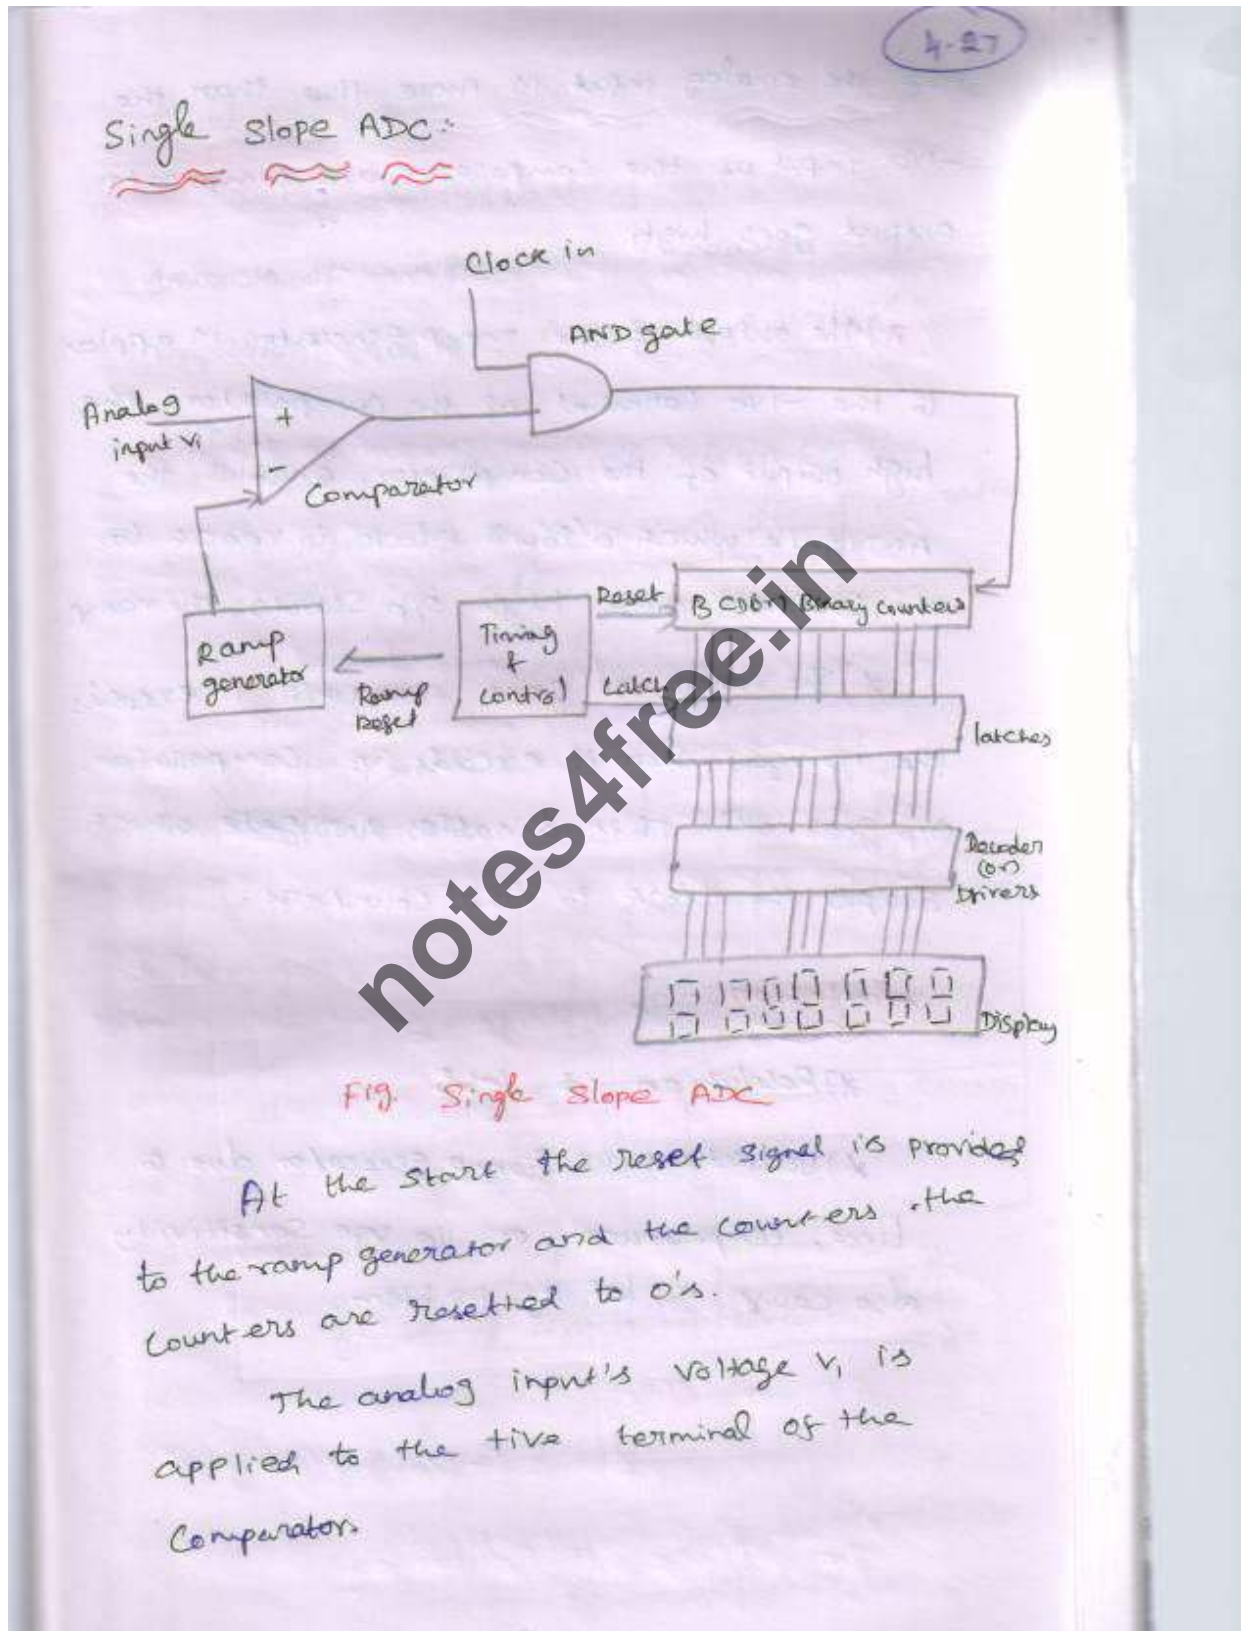 4-27
Single Slope ADC:-
Clock in
AND gate
Analog
input V₁
+
-
Comparator
Ramp
generator
Ramp
Reset
Timing
&
Control
Reset
Latch
BCD (or) Binary Counters
latches
Decoder
(or)
Drivers
Display
Fig. Single Slope ADC
At the start the reset signal is provided
to the ramp generator and the counters. the
Counters are resetted to 0's.
The analog input's voltage V₁ is
applied to the +ive terminal of the
Comparator.
notes4free.in